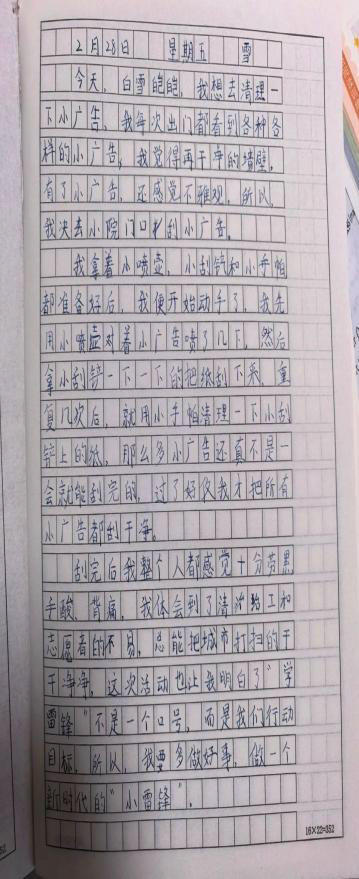 2月28日 星期五 雪
今天，白雪皑皑，我想去清理一
下小广告，我每次出门都看到各种各
样的小广告，我觉得再干净的墙壁，
有了小广告，还感觉不雅观，所以，
我决去小院门口刮小广告。
我拿着小喷壶，小刮铲和小手帕
都准备好后，我便开始动手了，我先
用小喷壶对着小广告喷了几下，然后
拿小刮铲一下一下的把纸刮下来，重
复几次后，就用小手帕清理一下小刮
铲上的纸，那么多小广告还真不是一
会就能刮完的，过了好久我才把所有
小广告都刮干净。
刮完后我整个人都感觉十分劳累
手酸、背痛，我体会到了清洁工和
志愿者的不易，总能把城市打扫的干
干净净，这次活动也让我明白了"学
雷锋"不是一个口号，而是我们行动
目标，所以，我要多做好事，做一个
新时代的"小雷锋"。
16×22=352